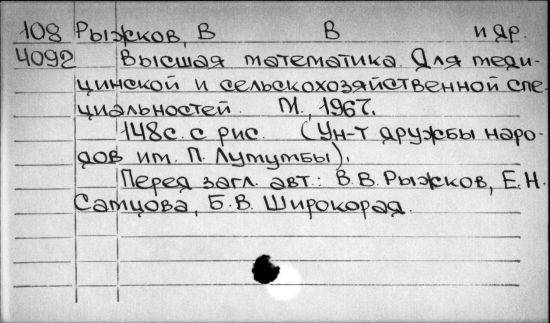 108 Рыжков, В В и др.
4092 Высшая математика. Для меди-
цинской и сельскохозяйственной спе-
циальностей. М., 1967.
148с. с рис. (Ун-т дружбы наро-
дов им. П. Лумумбы).
Перед загл. авт.: В.В. Рыжков, Е.Н.
Самцова, Б.В. Широкорад.